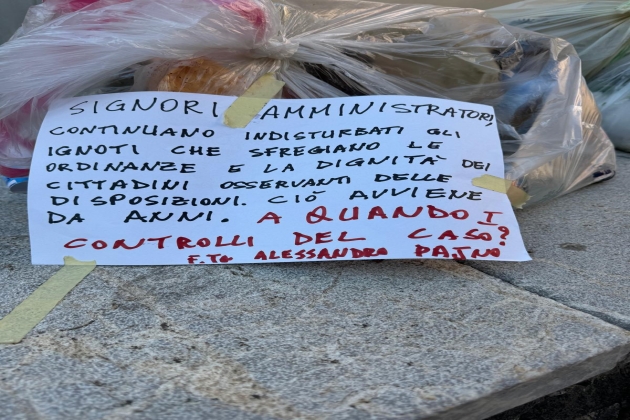 SIGNORI AMMINISTRATORI,
CONTINUANO INDISTURBATI GLI
IGNOTI CHE SFREGIANO LE
ORDINANZE E LA DIGNITÀ DEI
CITTADINI OSSERVANTI DELLE
DISPOSIZIONI. CIÒ AVVIENE
DA ANNI. A QUANDO I
CONTROLLI DEL CASO?
F.To ALESSANDRO PAJNO